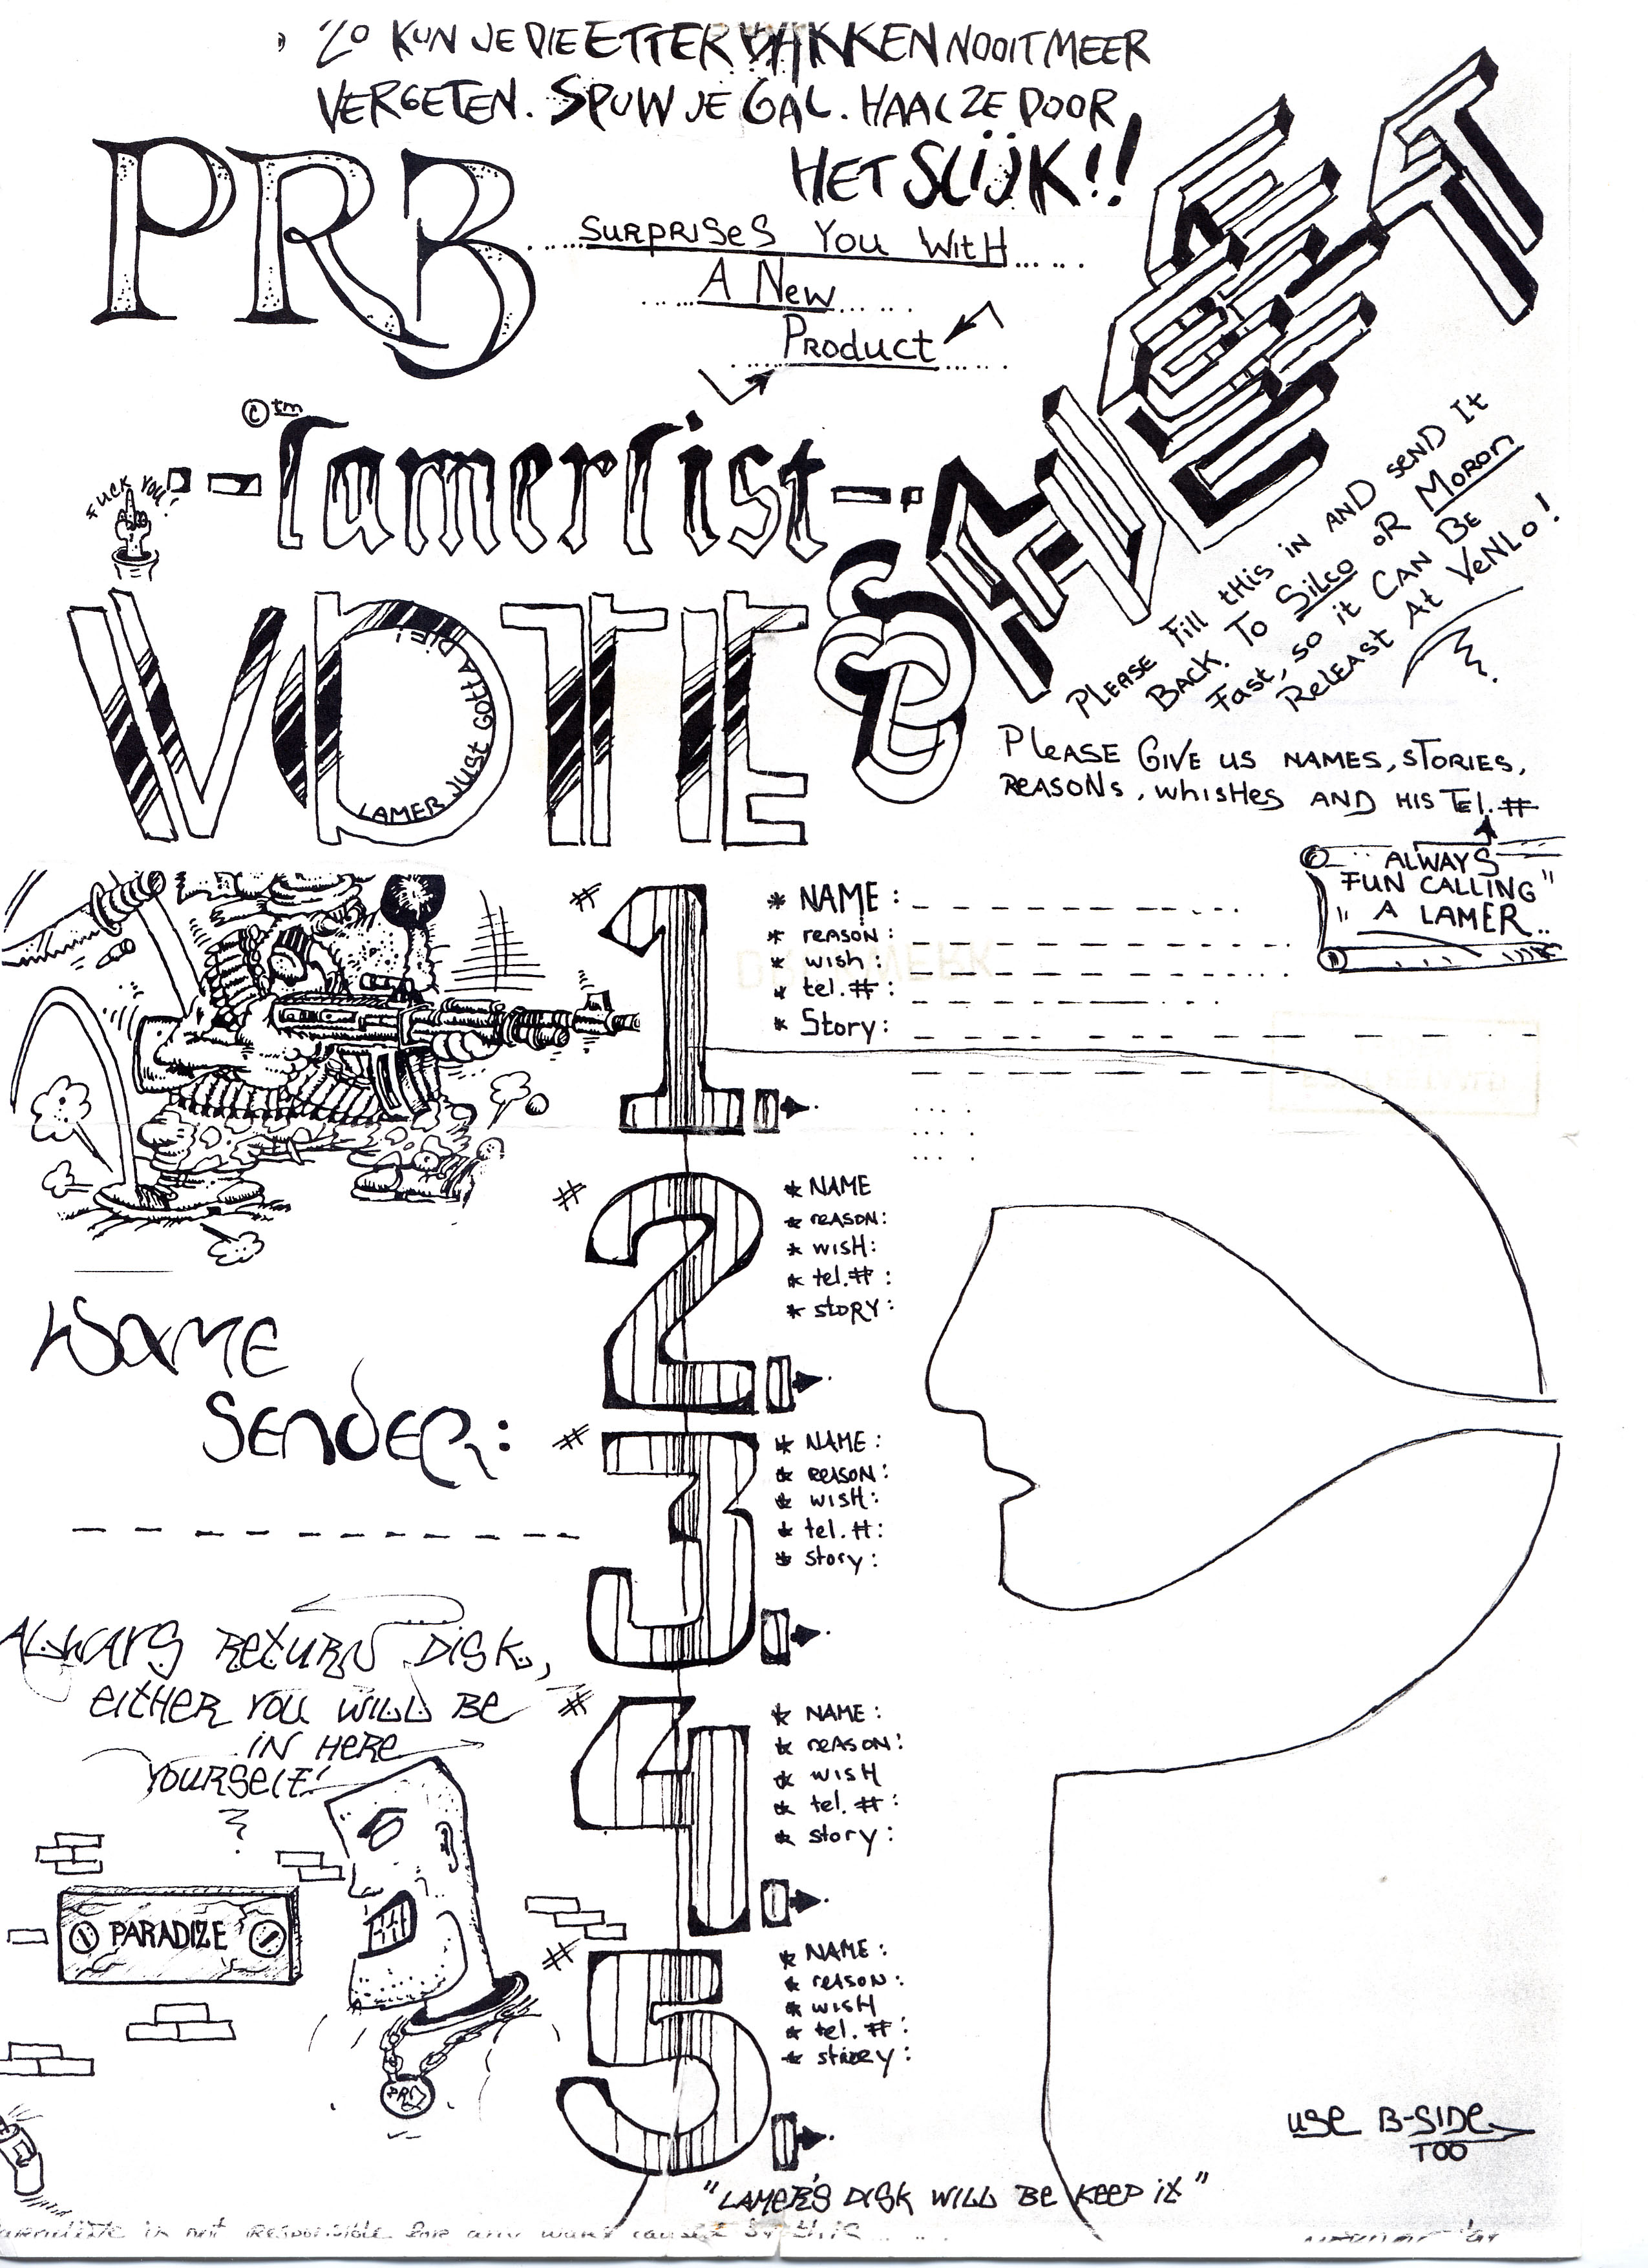 ZO KUN JE DIE ETTERBAKKEN NOOIT MEER
VERGETEN. SPUW JE GAL. HAAL ZE DOOR
HET SLIJK!!
PRB
SURPRISES YOU WITH
A NEW
PRODUCT
©tm
-lamerlist-
FUCK YOU!
VOTE
LAMER JUST GOTTA DIE!
SHEET
PLEASE Fill tHis iN AND SEND It
BACK. To Silco oR Moron
Fast, so it CAN BE
RELEASt At VeNLo!
PLEASE GIVE US NAMES, STORIES,
REASONs, whisHes AND HIS TEL.#
ALWAYS
FUN CALLING"
" A LAMER..
# 1
* NAME:
* reason:
* wish:
* tel.#:
* Story:
# 2
* NAME
* reason:
* wisH:
* tel.#:
* stoRY:
# 3
* NAME:
* reason:
* wisH:
* tel.#:
* story:
# 4
* NAME:
* reason:
* wisH
* tel.#:
* story:
# 5
* NAME:
* reason:
* wisH
* tel.#:
* storey:
NAME
SENDER:
ALWAYS RETURN DISK,
EITHER YOU WILL BE
IN HERE
YOURSELF!
PARADIZE
PRB
USE B-SIDE
TOO
"LAMER'S DISK WILL BE KEEP IT"
is not responsible for any wars caused by this